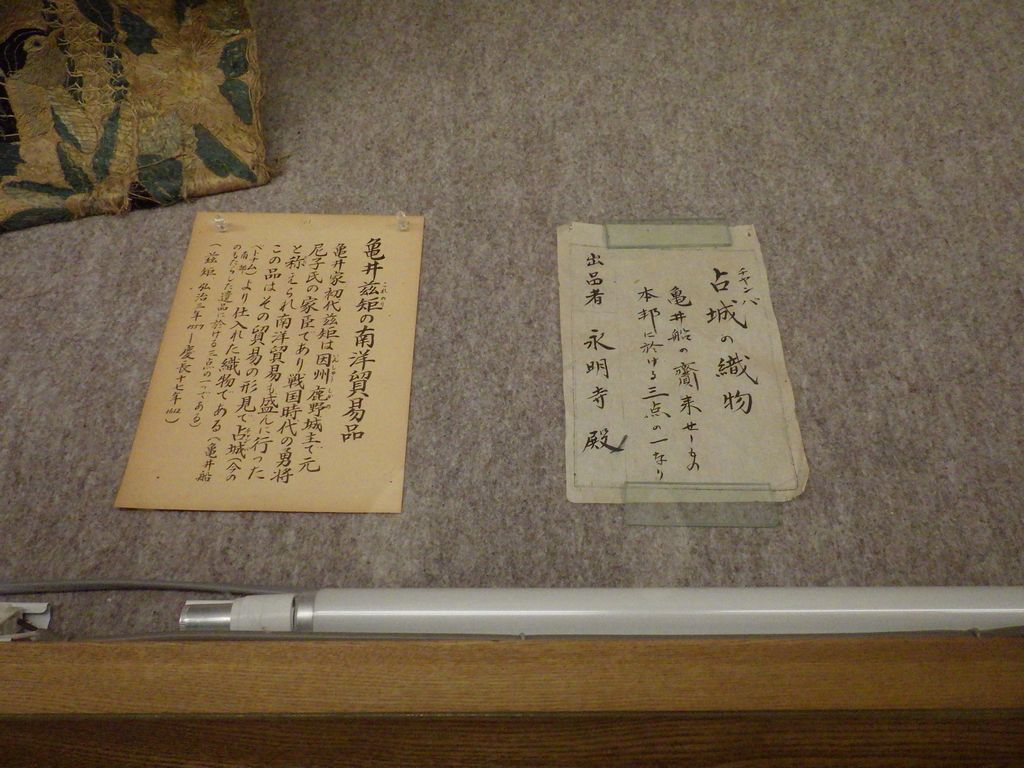 亀井茲矩の南洋貿易品
亀井家初代茲矩は因州鹿野城主で元
尼子氏の家臣であり戦国時代の勇将
と称えられ南洋貿易も盛んに行った
この品はその貿易の形見で占城(今の
ベトナム南部)より仕入れた織物である(亀井船
のもたらした遺品に於ける三点の一つである)
(茲矩 弘治三年1557―慶長十七年1612)
チャンバ
占城の織物
亀井船の齎来せしもの
本邦に於ける三点の一なり
出品者 永明寺殿